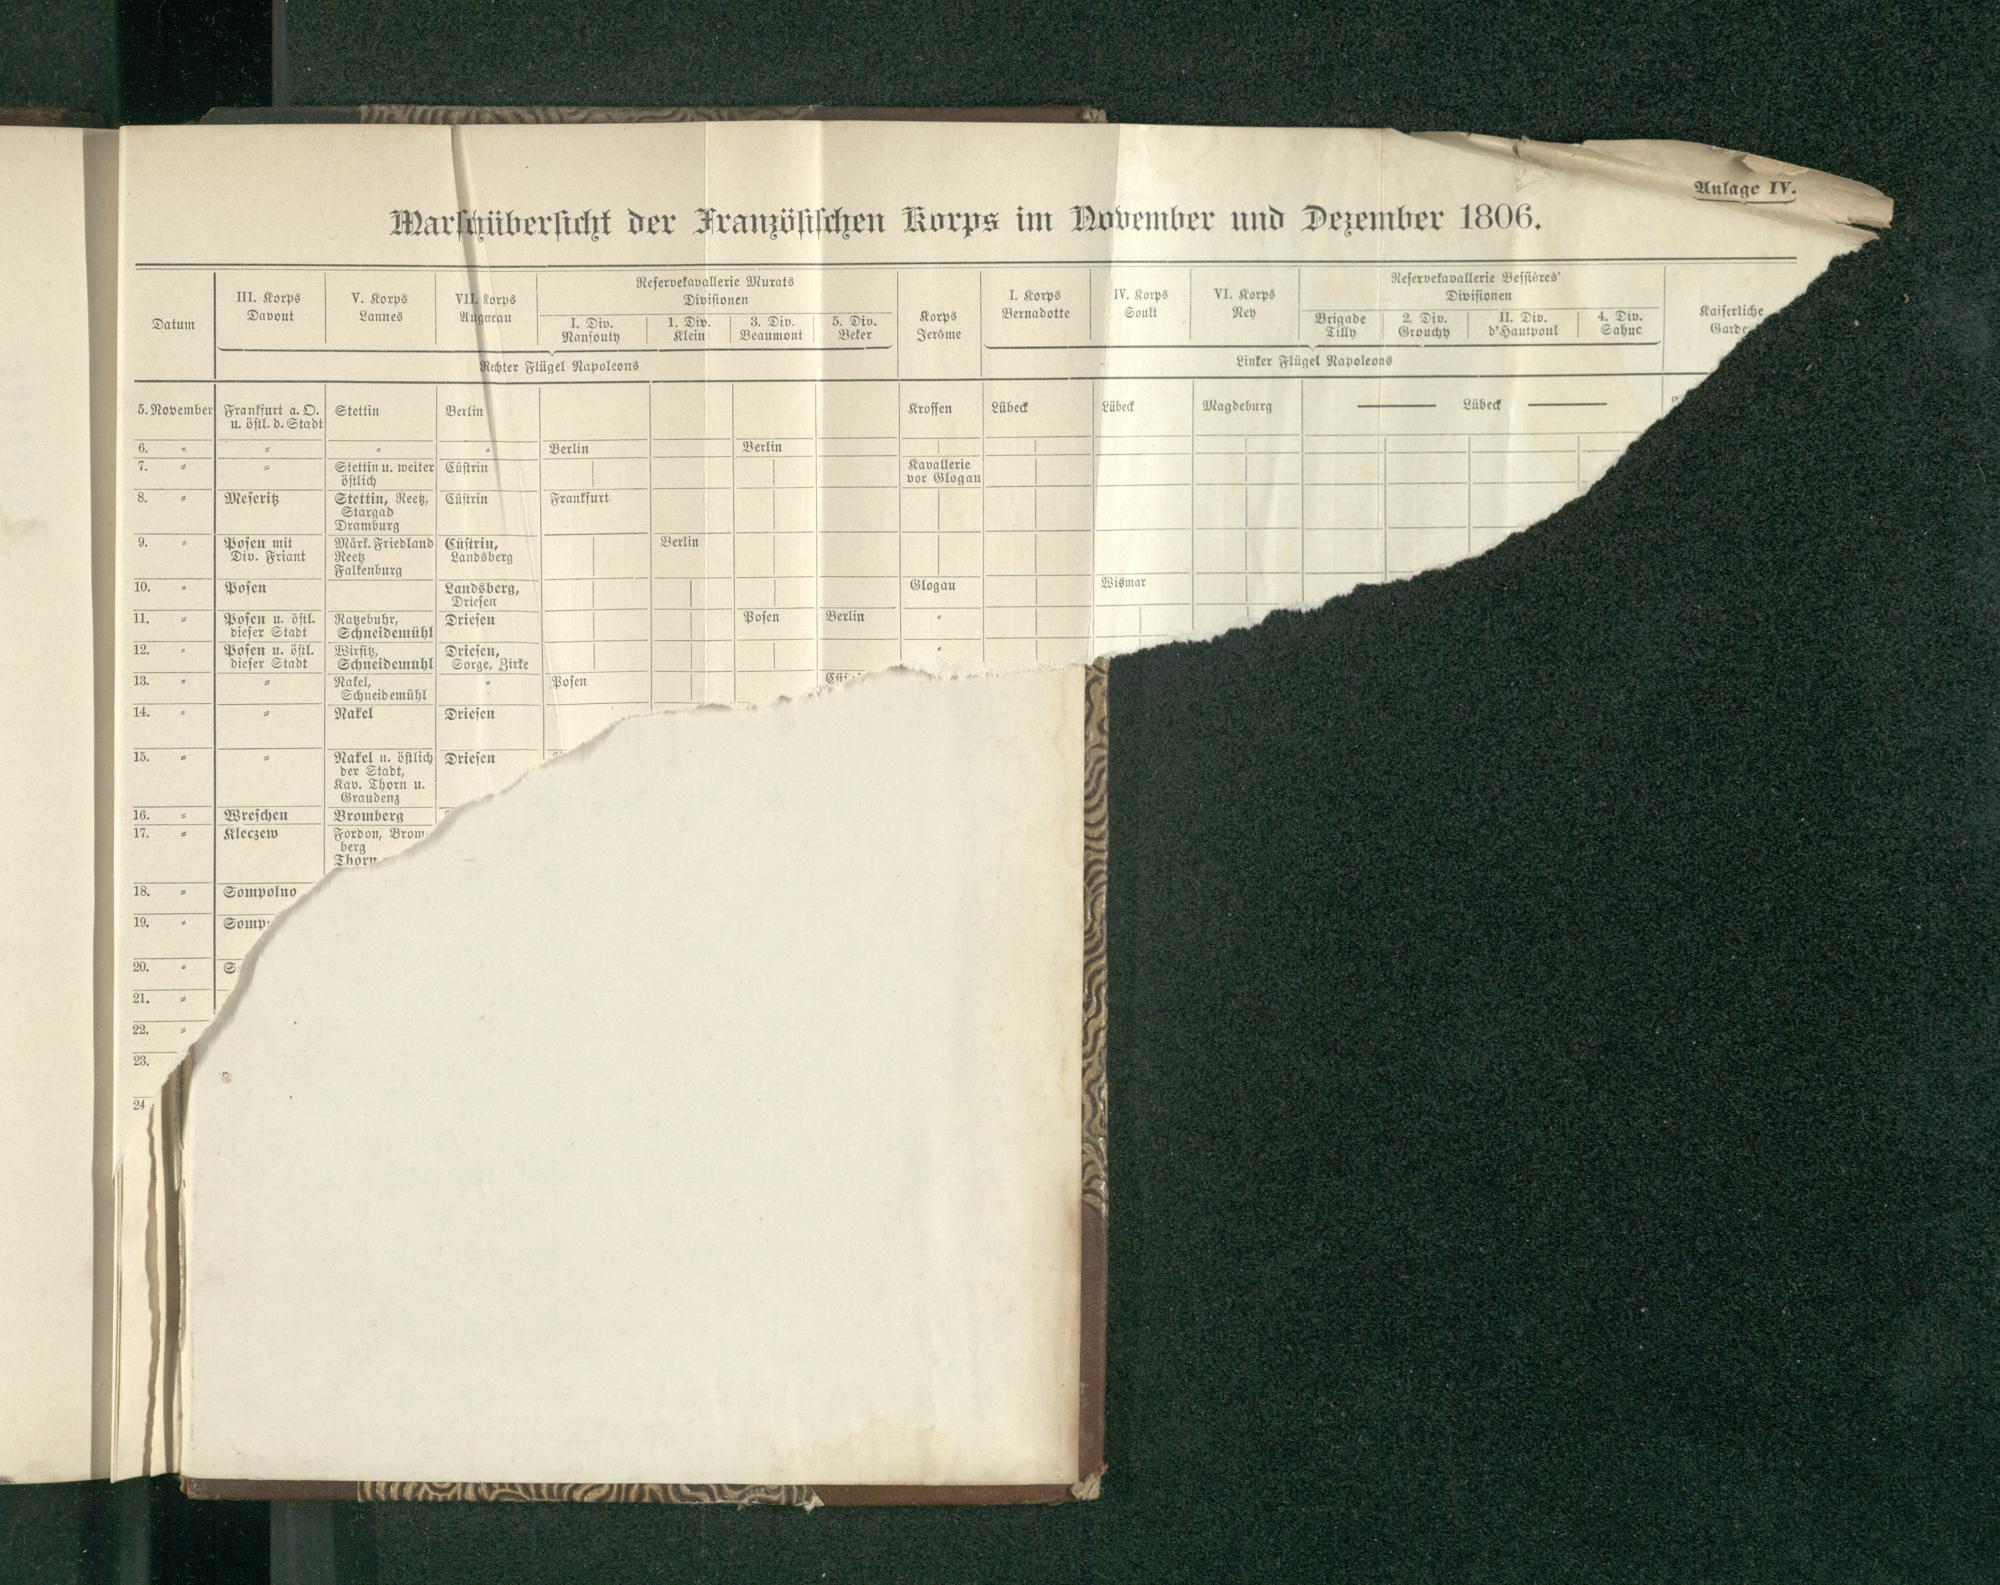 Anlage IV.
Marschübersicht der Französischen Korps im November und Dezember 1806.
Datum
III. Korps
Davout
V. Korps
Lannes
VII. Korps
Augereau
Reservekavallerie Murats
Divisionen
I. Div.
Nansouty
1. Div.
Klein
3. Div.
Beaumont
5. Div.
Beker
Korps
Jerôme
I. Korps
Bernadotte
IV. Korps
Soult
VI. Korps
Ney
Reservekavallerie Bessières'
Divisionen
Brigade
Tilly
2. Div.
Grouchy
II. Div.
d'Hautpoul
4. Div.
Sahuc
Kaiserliche
Garde
Rechter Flügel Napoleons
Linker Flügel Napoleons
5. November Frankfurt a. O. Stettin Berlin Krossen Lübeck Lübeck Magdeburg — Lübeck —
u. östl. d. Stadt
6. " " " " Berlin Berlin
7. " " Stettin u. weiter Cüstrin Kavallerie
östlich vor Glogau
8. " Meseritz Stettin, Reetz, Cüstrin Frankfurt
Stargad
Dramburg
9. " Posen mit Märk. Friedland Cüstrin, Berlin
Div. Friant Reetz Landsberg
Falkenburg
10. " Posen Landsberg, Glogau Wismar
Driesen
11. " Posen u. östl. Ratzebuhr, Driesen Posen Berlin "
dieser Stadt Schneidemühl
12. " Posen u. östl. Wirsitz, Driesen, "
dieser Stadt Schneidemühl Sorge, Zirke
13. " " Nakel, " Posen
Schneidemühl
14. " " Nakel Driesen
15. " " Nakel u. östlich Driesen
der Stadt,
Kav. Thorn u.
Graudenz
16. " Wreschen Bromberg
17. " Kleczew Fordon, Brom-
berg
Thorn
18. " Sompolno
19. " Somp
20. " S
21. "
22. "
23.
24